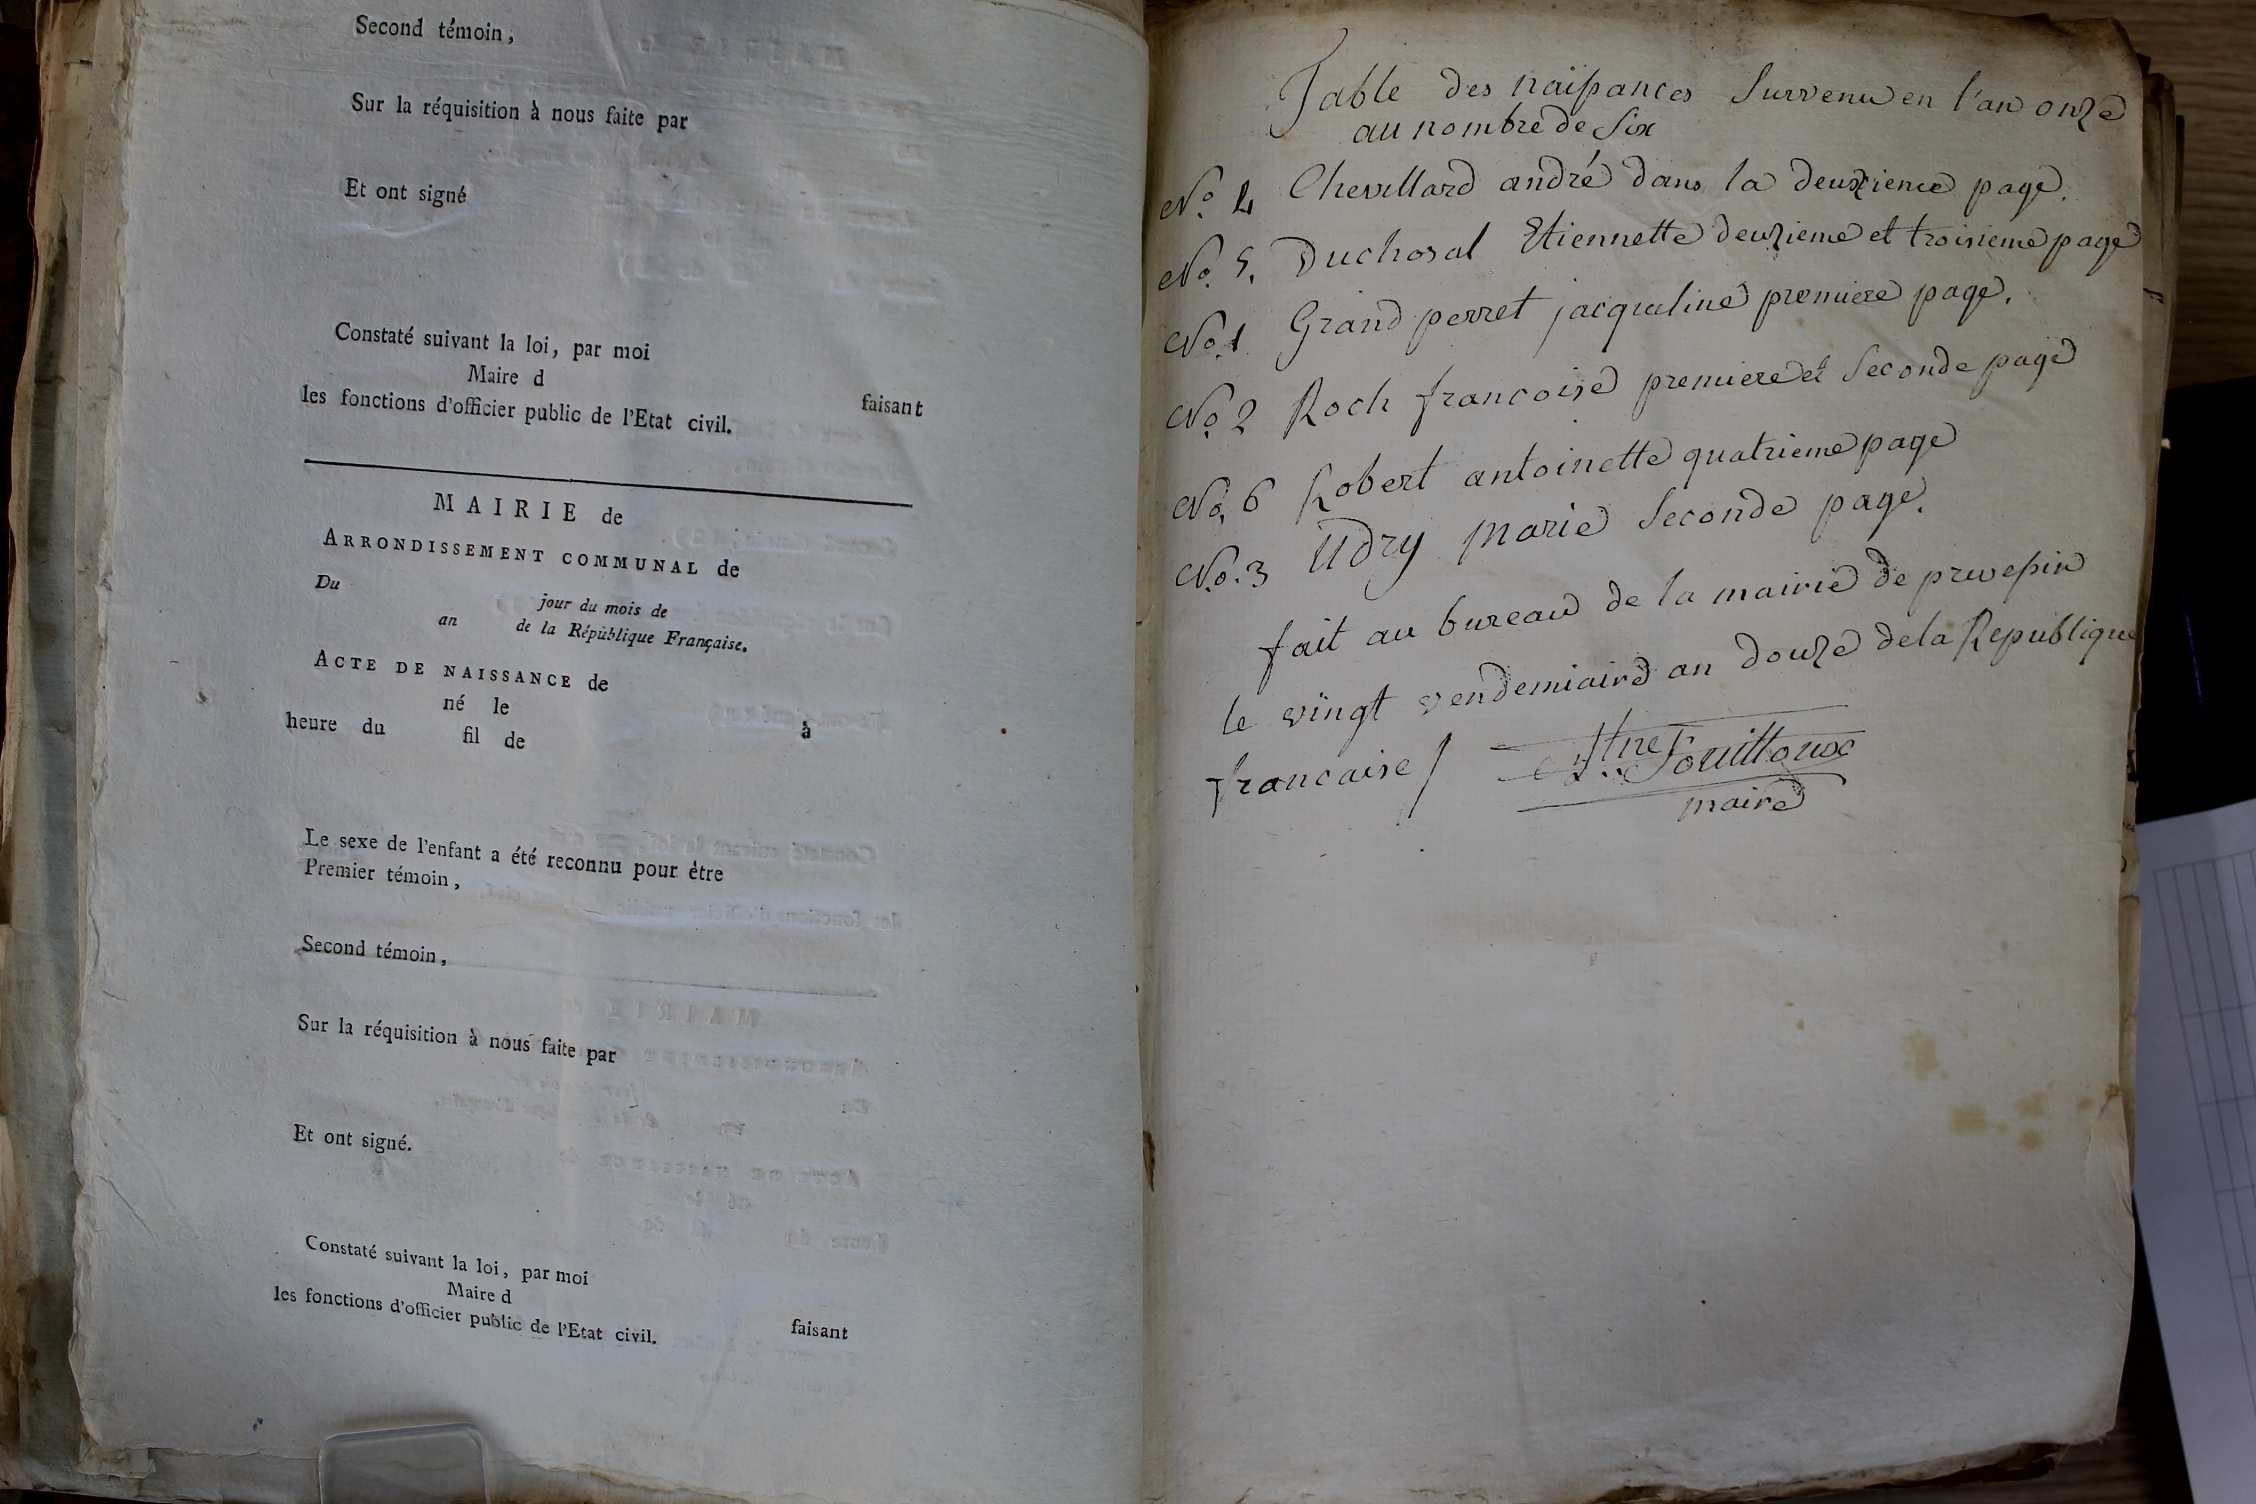 Second témoin,
Sur la réquisition à nous faite par
Et ont signé
Constaté suivant la loi, par moi
Maire d faisant
les fonctions d'officier public de l'Etat civil.
MAIRIE de
ARRONDISSEMENT COMMUNAL de
Du jour du mois de
an de la République Française.
ACTE DE NAISSANCE de
né le à
heure du fil de
Le sexe de l'enfant a été reconnu pour être
Premier témoin,
Second témoin,
Sur la réquisition à nous faite par
Et ont signé.
Constaté suivant la loi, par moi
Maire d faisant
les fonctions d'officier public de l'Etat civil.
Table des naissances survenu en l'an onze
au nombre de six
No. 4 Chevillard andré dans la deuxieme page.
No. 5. Duchosal Etiennette deuzieme et troisieme page
No. 1 Grand perret jacqueline premiere page.
No. 2 Roch francoise premiere et seconde page
No. 6 Robert antoinette quatrieme page
No. 3 Udry marie seconde page.
fait au bureau de la mairie de prevessin
le vingt vendemiaire an douze de la Republique
francaise / Fouilloux
maire